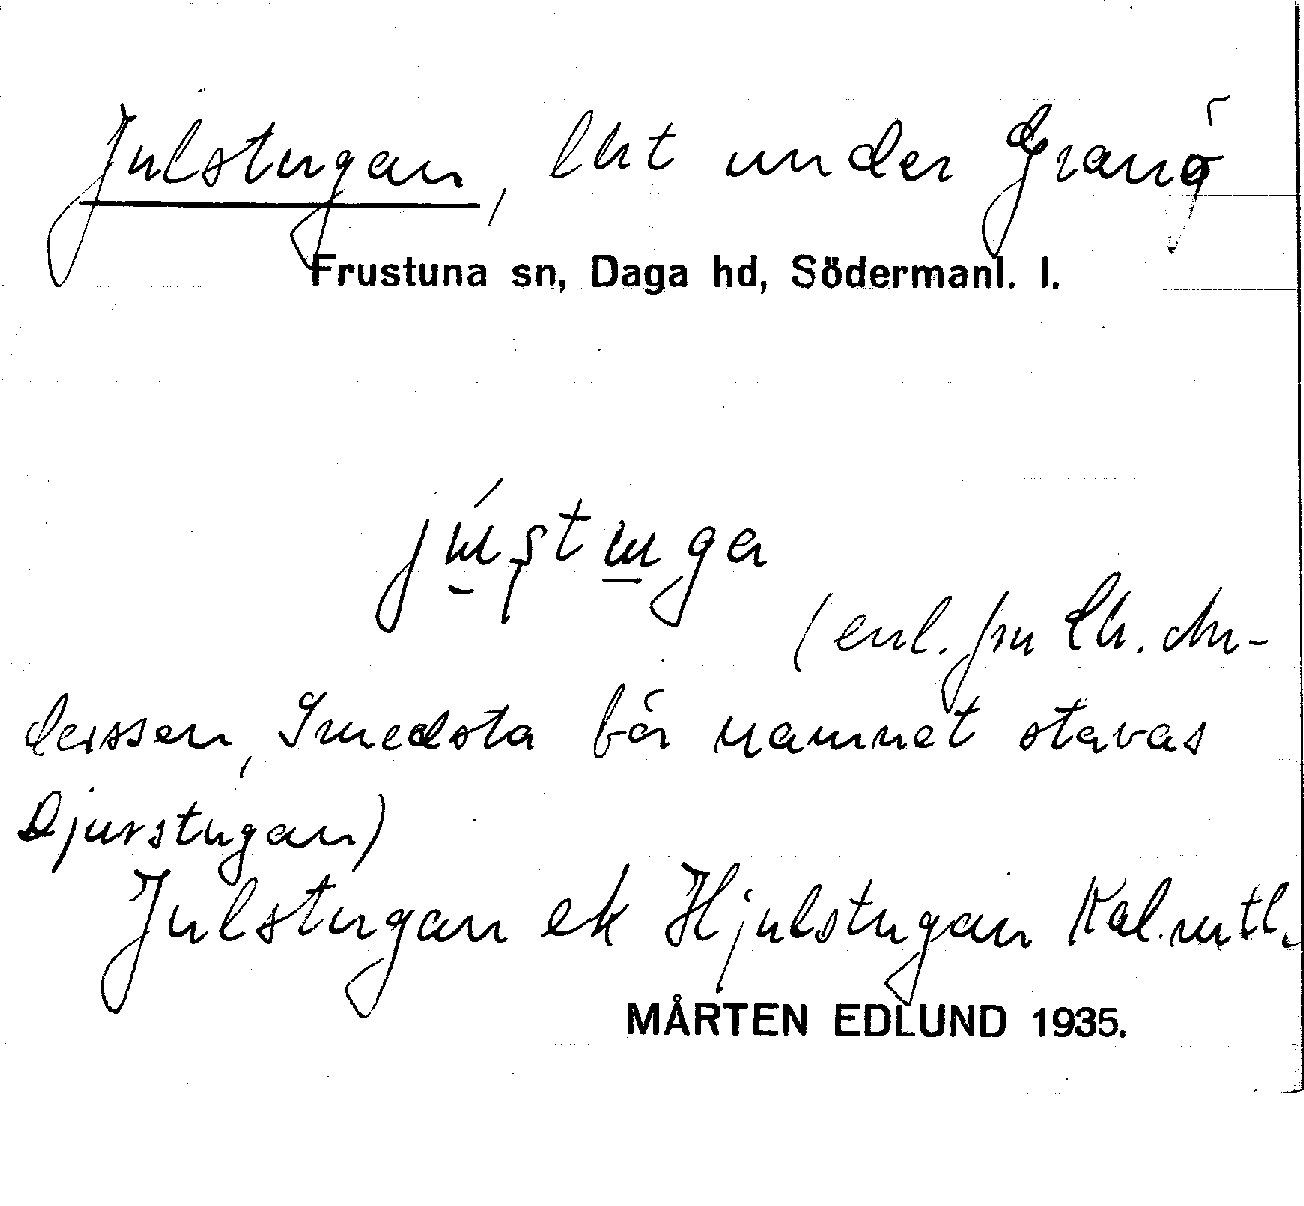 Julstugan, lht under Granö
Frustuna sn, Daga hd, Södermanl. l.
(enl. fru Ch. An-
derssen, Smedsta bör namnet stavas
Djurstugan)
Julstugan ek Hjulstugan Kal.
MÅRTEN EDLUND 1935.